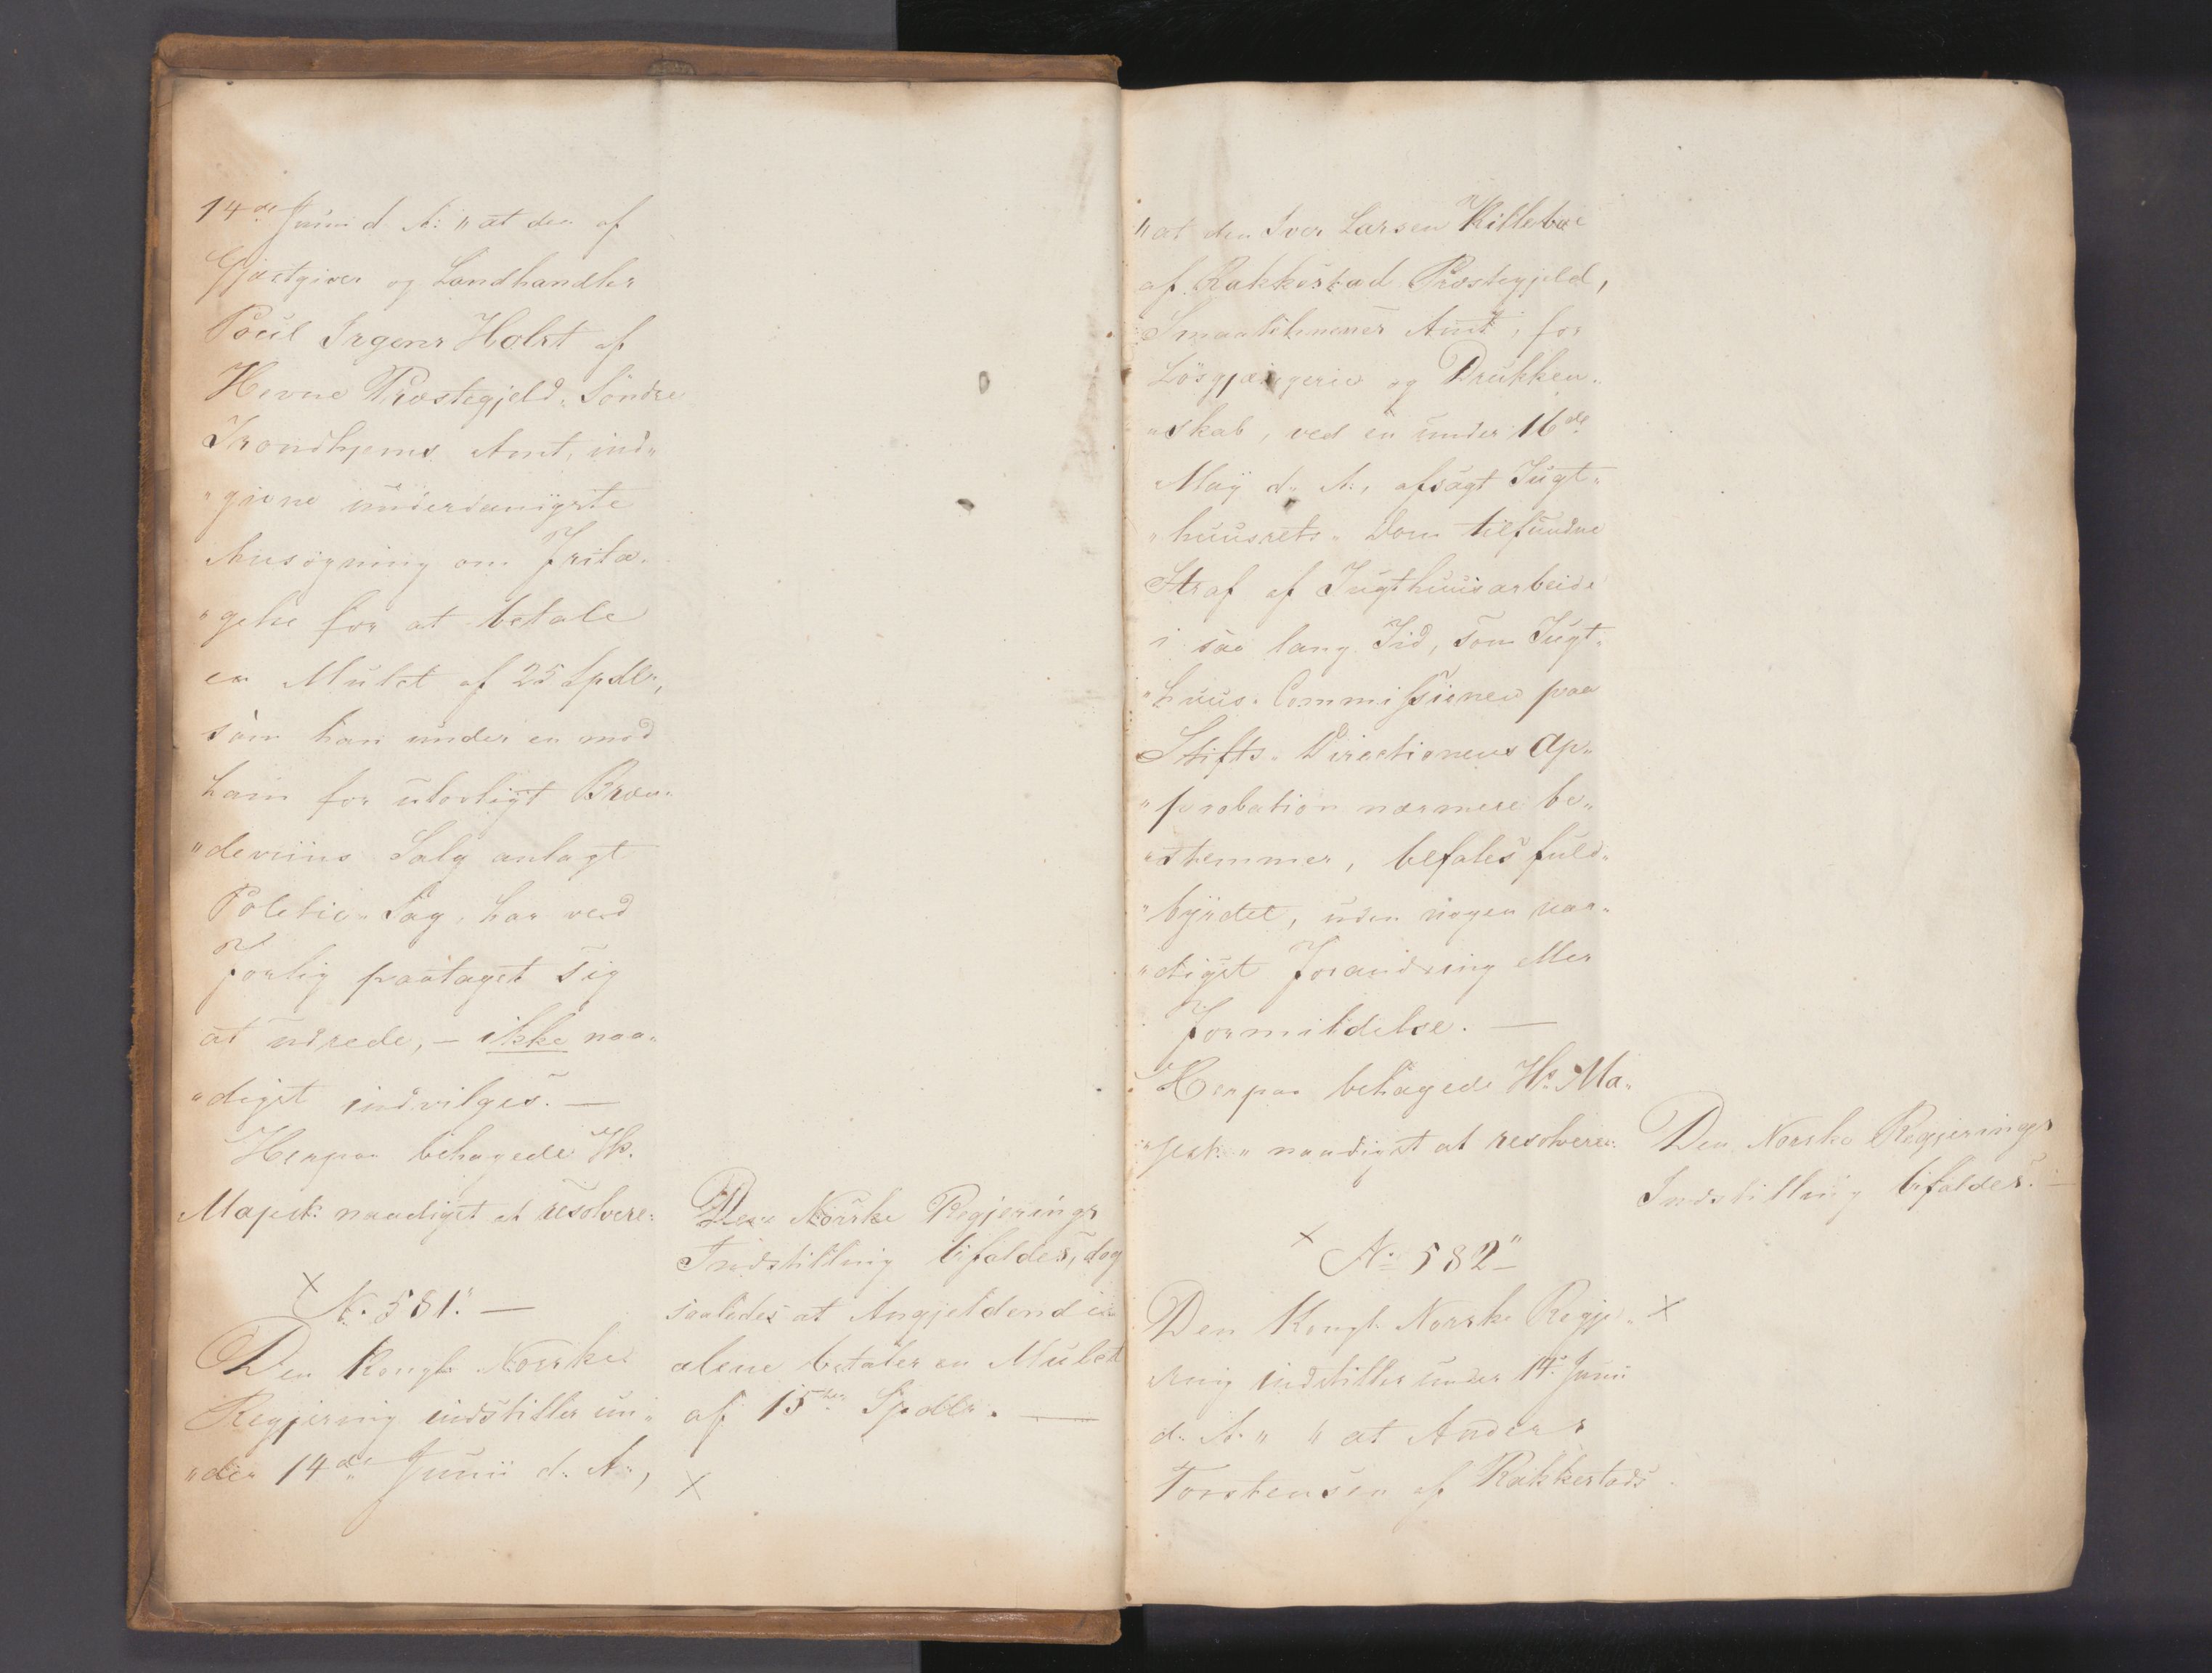 14de Junii d. A: „at den af
Gjæstgiver og Landhandler
Poul Irgens Holst af
Hevne Præstegjeld, Söndre
Trondhjems Amt, ind„
„givne underdanigste
Ansögning om Frita„
„gelse for at betale
en Mulct af 25 Spdlr,
som han under en mod
ham for ulovligt Bræn„
„deviins Salg anlagt
Politie„ Sag, har ved
Forlig paataget sig
at udrede, – ikke naa„
„digst indvilges. —
Herpaa behagede Hs.
Majest: naadigst at resolvere:
Den Norske Regjerings
Indstilling bifaldes, dog
saaledes at Angjeldende
alene betaler en Mulct
af 15ten Spdlr. —
x
x
N. 581. —
Den Kongl. Norske
Regjering indstiller un„
„der 14de Junii d. A.,
„at den Iver Larsen Killeboe
af Rakkestad Præstegjeld,
Smaalehnenes Amt, for
Lösgjængerie og Drukken„
„skab, ved en under 16de
May d. A., afsagt Tugt„
„huusrets„ Dom tilfundne
Straf af Tugthuusarbeide
i saa lang Tid, som Tugt„
„huus„ Commissionen paa
Stifts„ Directionens Ap„
„probation nærmere be„
„stemmer, befales fuld„
„byrdet, uden nogen naa„
„digst Forandring eller
Formildelse. —
Herpaa behagede Hs. Ma„
„jest: „ naadigst at resolvere:
Den Norske Regjerings
Indstilling bifaldes. —
x
N. 582
Den Kongl. Norske Regje„ x
ring indstiller under 14. Junii
d. A. „ „at Anders
Torstensen af Rakkestads